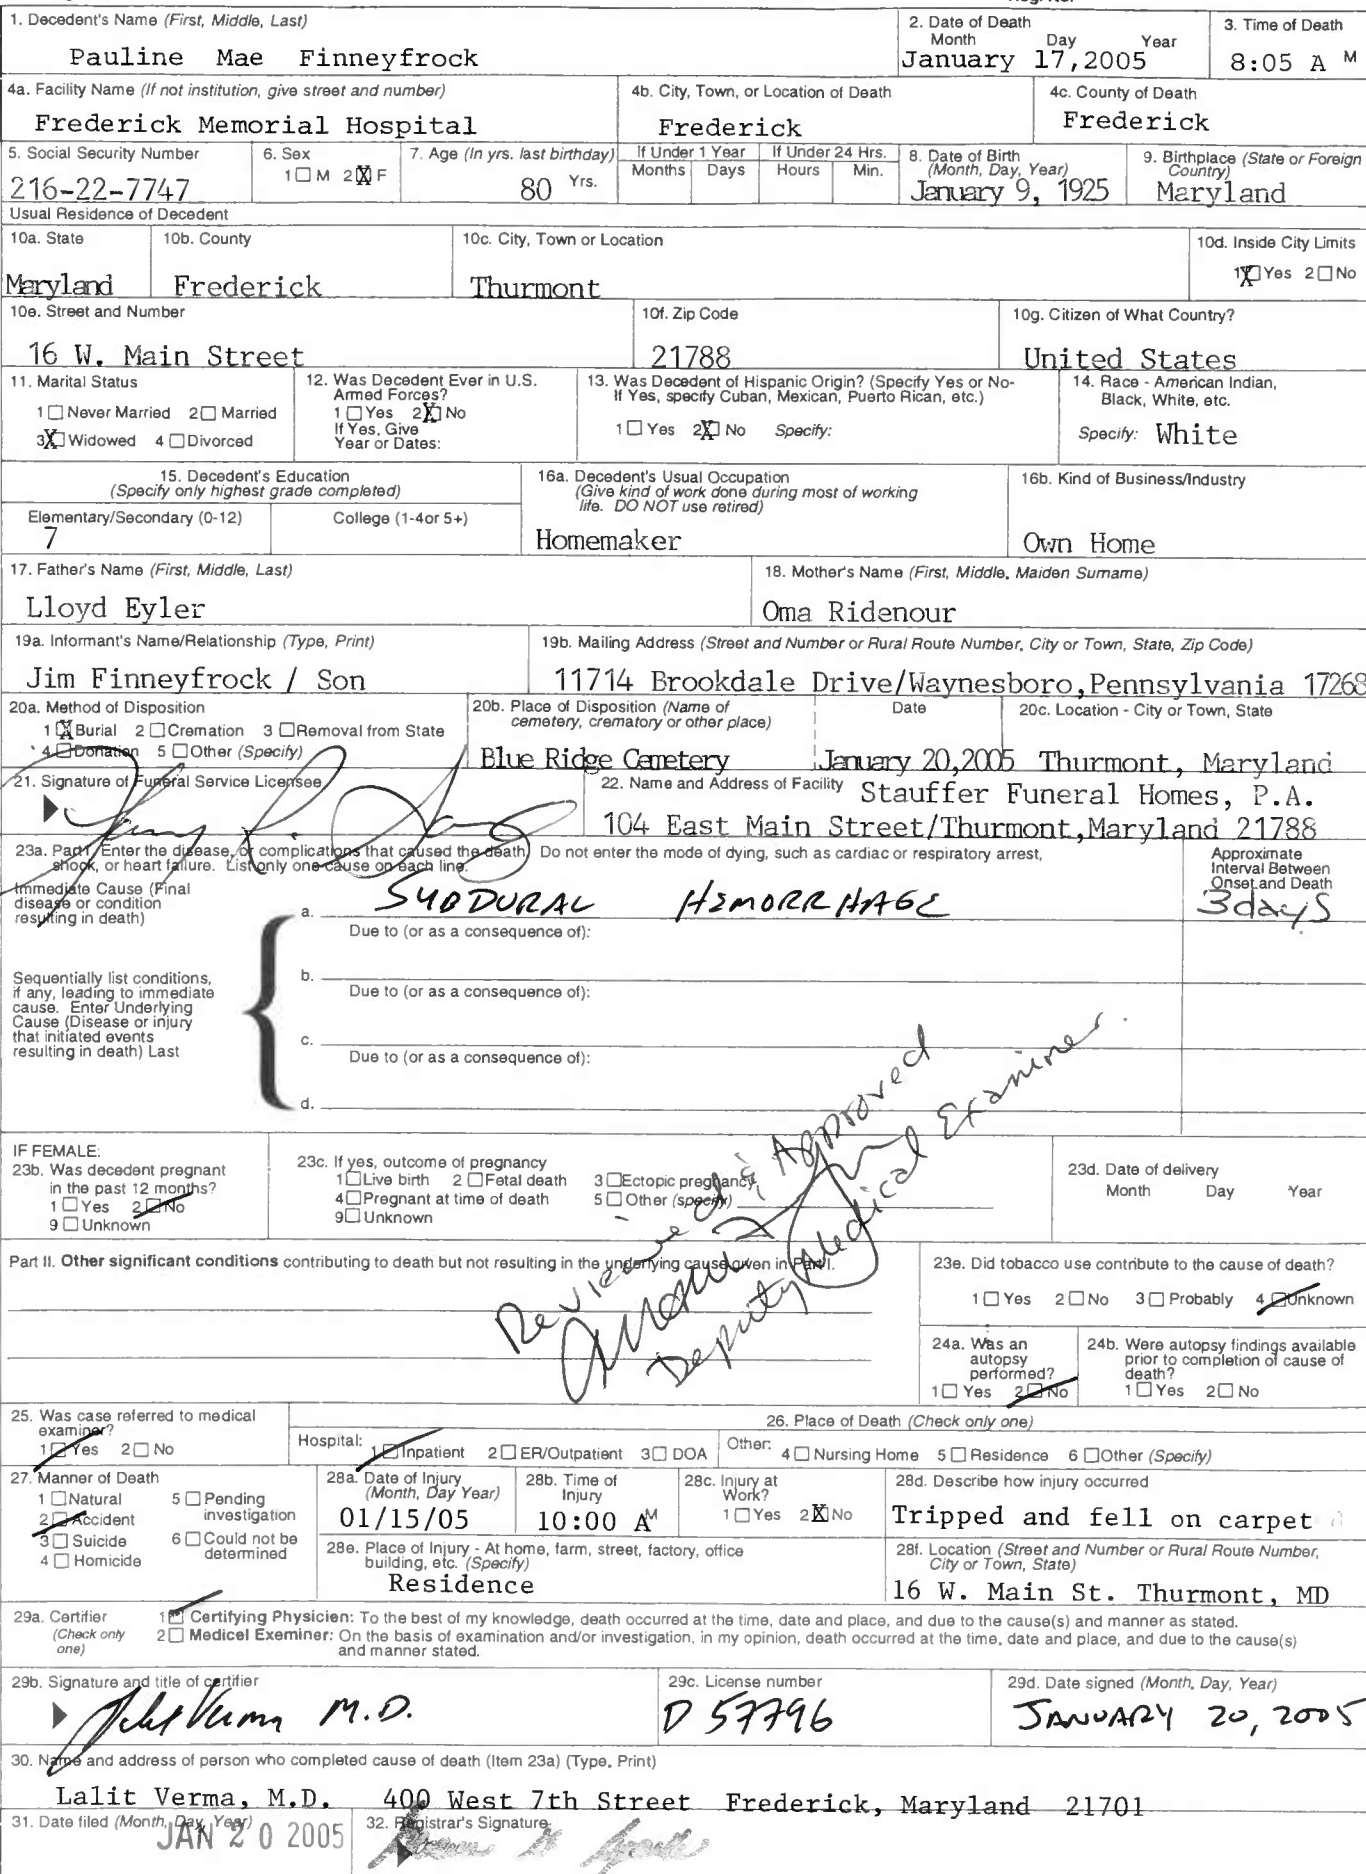 1. Decedent's Name (First, Middle, Last)
Pauline Mae Finneyfrock
2. Date of Death
Month Day Year
January 17,2005
3. Time of Death
8:05 A M
4a. Facility Name (If not institution, give street and number)
Frederick Memorial Hospital
4b. City, Town, or Location of Death
Frederick
4c. County of Death
Frederick
5. Social Security Number
216-22-7747
6. Sex
1☐ M 2☒ F
7. Age (In yrs. last birthday)
80 Yrs.
If Under 1 Year
Months Days
If Under 24 Hrs.
Hours Min.
8. Date of Birth
(Month, Day, Year)
January 9, 1925
9. Birthplace (State or Foreign
Country)
Maryland
Usual Residence of Decedent
10a. State
Maryland
10b. County
Frederick
10c. City, Town or Location
Thurmont
10d. Inside City Limits
1☒ Yes 2☐ No
10e. Street and Number
16 W. Main Street
10f. Zip Code
21788
10g. Citizen of What Country?
United States
11. Marital Status
1☐ Never Married 2☐ Married
3☒ Widowed 4☐ Divorced
12. Was Decedent Ever in U.S.
Armed Forces?
1☐ Yes 2☒ No
If Yes, Give
Year or Dates:
13. Was Decedent of Hispanic Origin? (Specify Yes or No-
If Yes, specify Cuban, Mexican, Puerto Rican, etc.)
1☐ Yes 2☒ No Specify:
14. Race - American Indian,
Black, White, etc.
Specify: White
15. Decedent's Education
(Specify only highest grade completed)
Elementary/Secondary (0-12)
7
College (1-4or 5+)
16a. Decedent's Usual Occupation
(Give kind of work done during most of working
life. DO NOT use retired)
Homemaker
16b. Kind of Business/Industry
Own Home
17. Father's Name (First, Middle, Last)
Lloyd Eyler
18. Mother's Name (First, Middle, Maiden Surname)
Oma Ridenour
19a. Informant's Name/Relationship (Type, Print)
Jim Finneyfrock / Son
19b. Mailing Address (Street and Number or Rural Route Number, City or Town, State, Zip Code)
11714 Brookdale Drive/Waynesboro,Pennsylvania 17268
20a. Method of Disposition
1☒ Burial 2☐ Cremation 3☐ Removal from State
4☐ Donation 5☐ Other (Specify)
20b. Place of Disposition (Name of
cemetery, crematory or other place)
Blue Ridge Cemetery
Date
January 20,2005
20c. Location - City or Town, State
Thurmont, Maryland
21. Signature of Funeral Service Licensee
22. Name and Address of Facility Stauffer Funeral Homes, P.A.
104 East Main Street/Thurmont,Maryland 21788
23a. Part I Enter the disease, or complications that caused the death) Do not enter the mode of dying, such as cardiac or respiratory arrest,
shock, or heart failure. List only one cause on each line.
Approximate
Interval Between
Onset and Death
Immediate Cause (Final
disease or condition
resulting in death)
a. SUBDURAL HEMORRHAGE
3 days
Due to (or as a consequence of):
Sequentially list conditions,
if any, leading to immediate
cause. Enter Underlying
Cause (Disease or injury
that initiated events
resulting in death) Last
b.
Due to (or as a consequence of):
c.
Due to (or as a consequence of):
d.
Reviewed & Approved
Deputy Medical Examiner.
IF FEMALE:
23b. Was decedent pregnant
in the past 12 months?
1☐ Yes 2☑ No
9☐ Unknown
23c. If yes, outcome of pregnancy
1☐ Live birth 2☐ Fetal death 3☐ Ectopic pregnancy
4☐ Pregnant at time of death 5☐ Other (specify)
9☐ Unknown
23d. Date of delivery
Month Day Year
Part II. Other significant conditions contributing to death but not resulting in the underlying cause given in Part I.
23e. Did tobacco use contribute to the cause of death?
1☐ Yes 2☐ No 3☐ Probably 4☑ Unknown
24a. Was an
autopsy
performed?
1☐ Yes 2☑ No
24b. Were autopsy findings available
prior to completion of cause of
death?
1☐ Yes 2☐ No
25. Was case referred to medical
examiner?
1☑ Yes 2☐ No
26. Place of Death (Check only one)
Hospital: 1☑ Inpatient 2☐ ER/Outpatient 3☐ DOA
Other: 4☐ Nursing Home 5☐ Residence 6☐ Other (Specify)
27. Manner of Death
1☐ Natural 5☐ Pending
investigation
2☑ Accident
3☐ Suicide 6☐ Could not be
determined
4☐ Homicide
28a. Date of Injury
(Month, Day Year)
01/15/05
28b. Time of
Injury
10:00 A M
28c. Injury at
Work?
1☐ Yes 2☒ No
28d. Describe how injury occurred
Tripped and fell on carpet
28e. Place of Injury - At home, farm, street, factory, office
building, etc. (Specify)
Residence
28f. Location (Street and Number or Rural Route Number,
City or Town, State)
16 W. Main St. Thurmont, MD
29a. Certifier
(Check only
one)
1☑ Certifying Physicien: To the best of my knowledge, death occurred at the time, date and place, and due to the cause(s) and manner as stated.
2☐ Medicel Exeminer: On the basis of examination and/or investigation, in my opinion, death occurred at the time, date and place, and due to the cause(s)
and manner stated.
29b. Signature and title of certifier
Lalit Verma M.D.
29c. License number
D 57796
29d. Date signed (Month, Day, Year)
JANUARY 20, 2005
30. Name and address of person who completed cause of death (Item 23a) (Type, Print)
Lalit Verma, M.D. 400 West 7th Street Frederick, Maryland 21701
31. Date filed (Month, Day, Year)
JAN 20 2005
32. Registrar's Signature